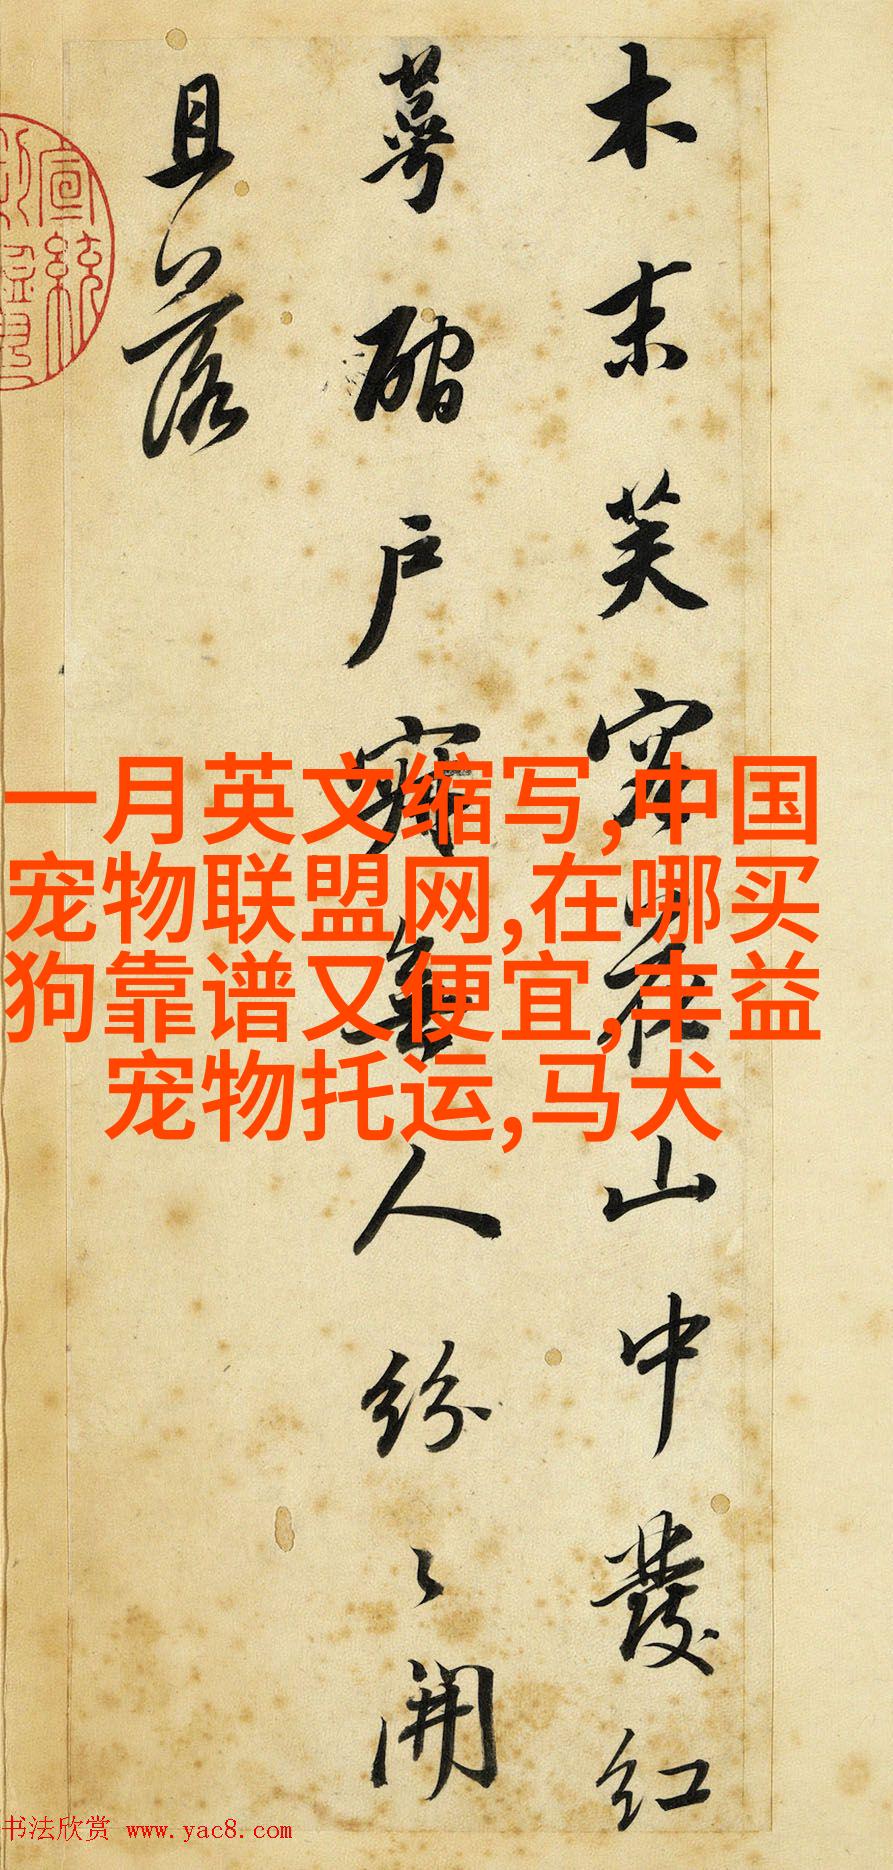 木末芙容花山中發紅
萼磵戶寂無人紛〻開
且落
宣統
一月英文缩写,中国
宠物联盟网,在哪买
狗靠谱又便宜,丰益
宠物托运,马犬
书法欣赏 www.yac8.com